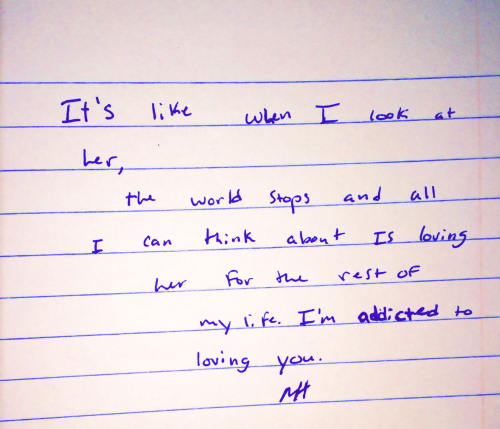 It's like when I look at
her,
the world stops and all
I can think about Is loving
her for the rest of
my life. I'm addicted to
loving you.
MH